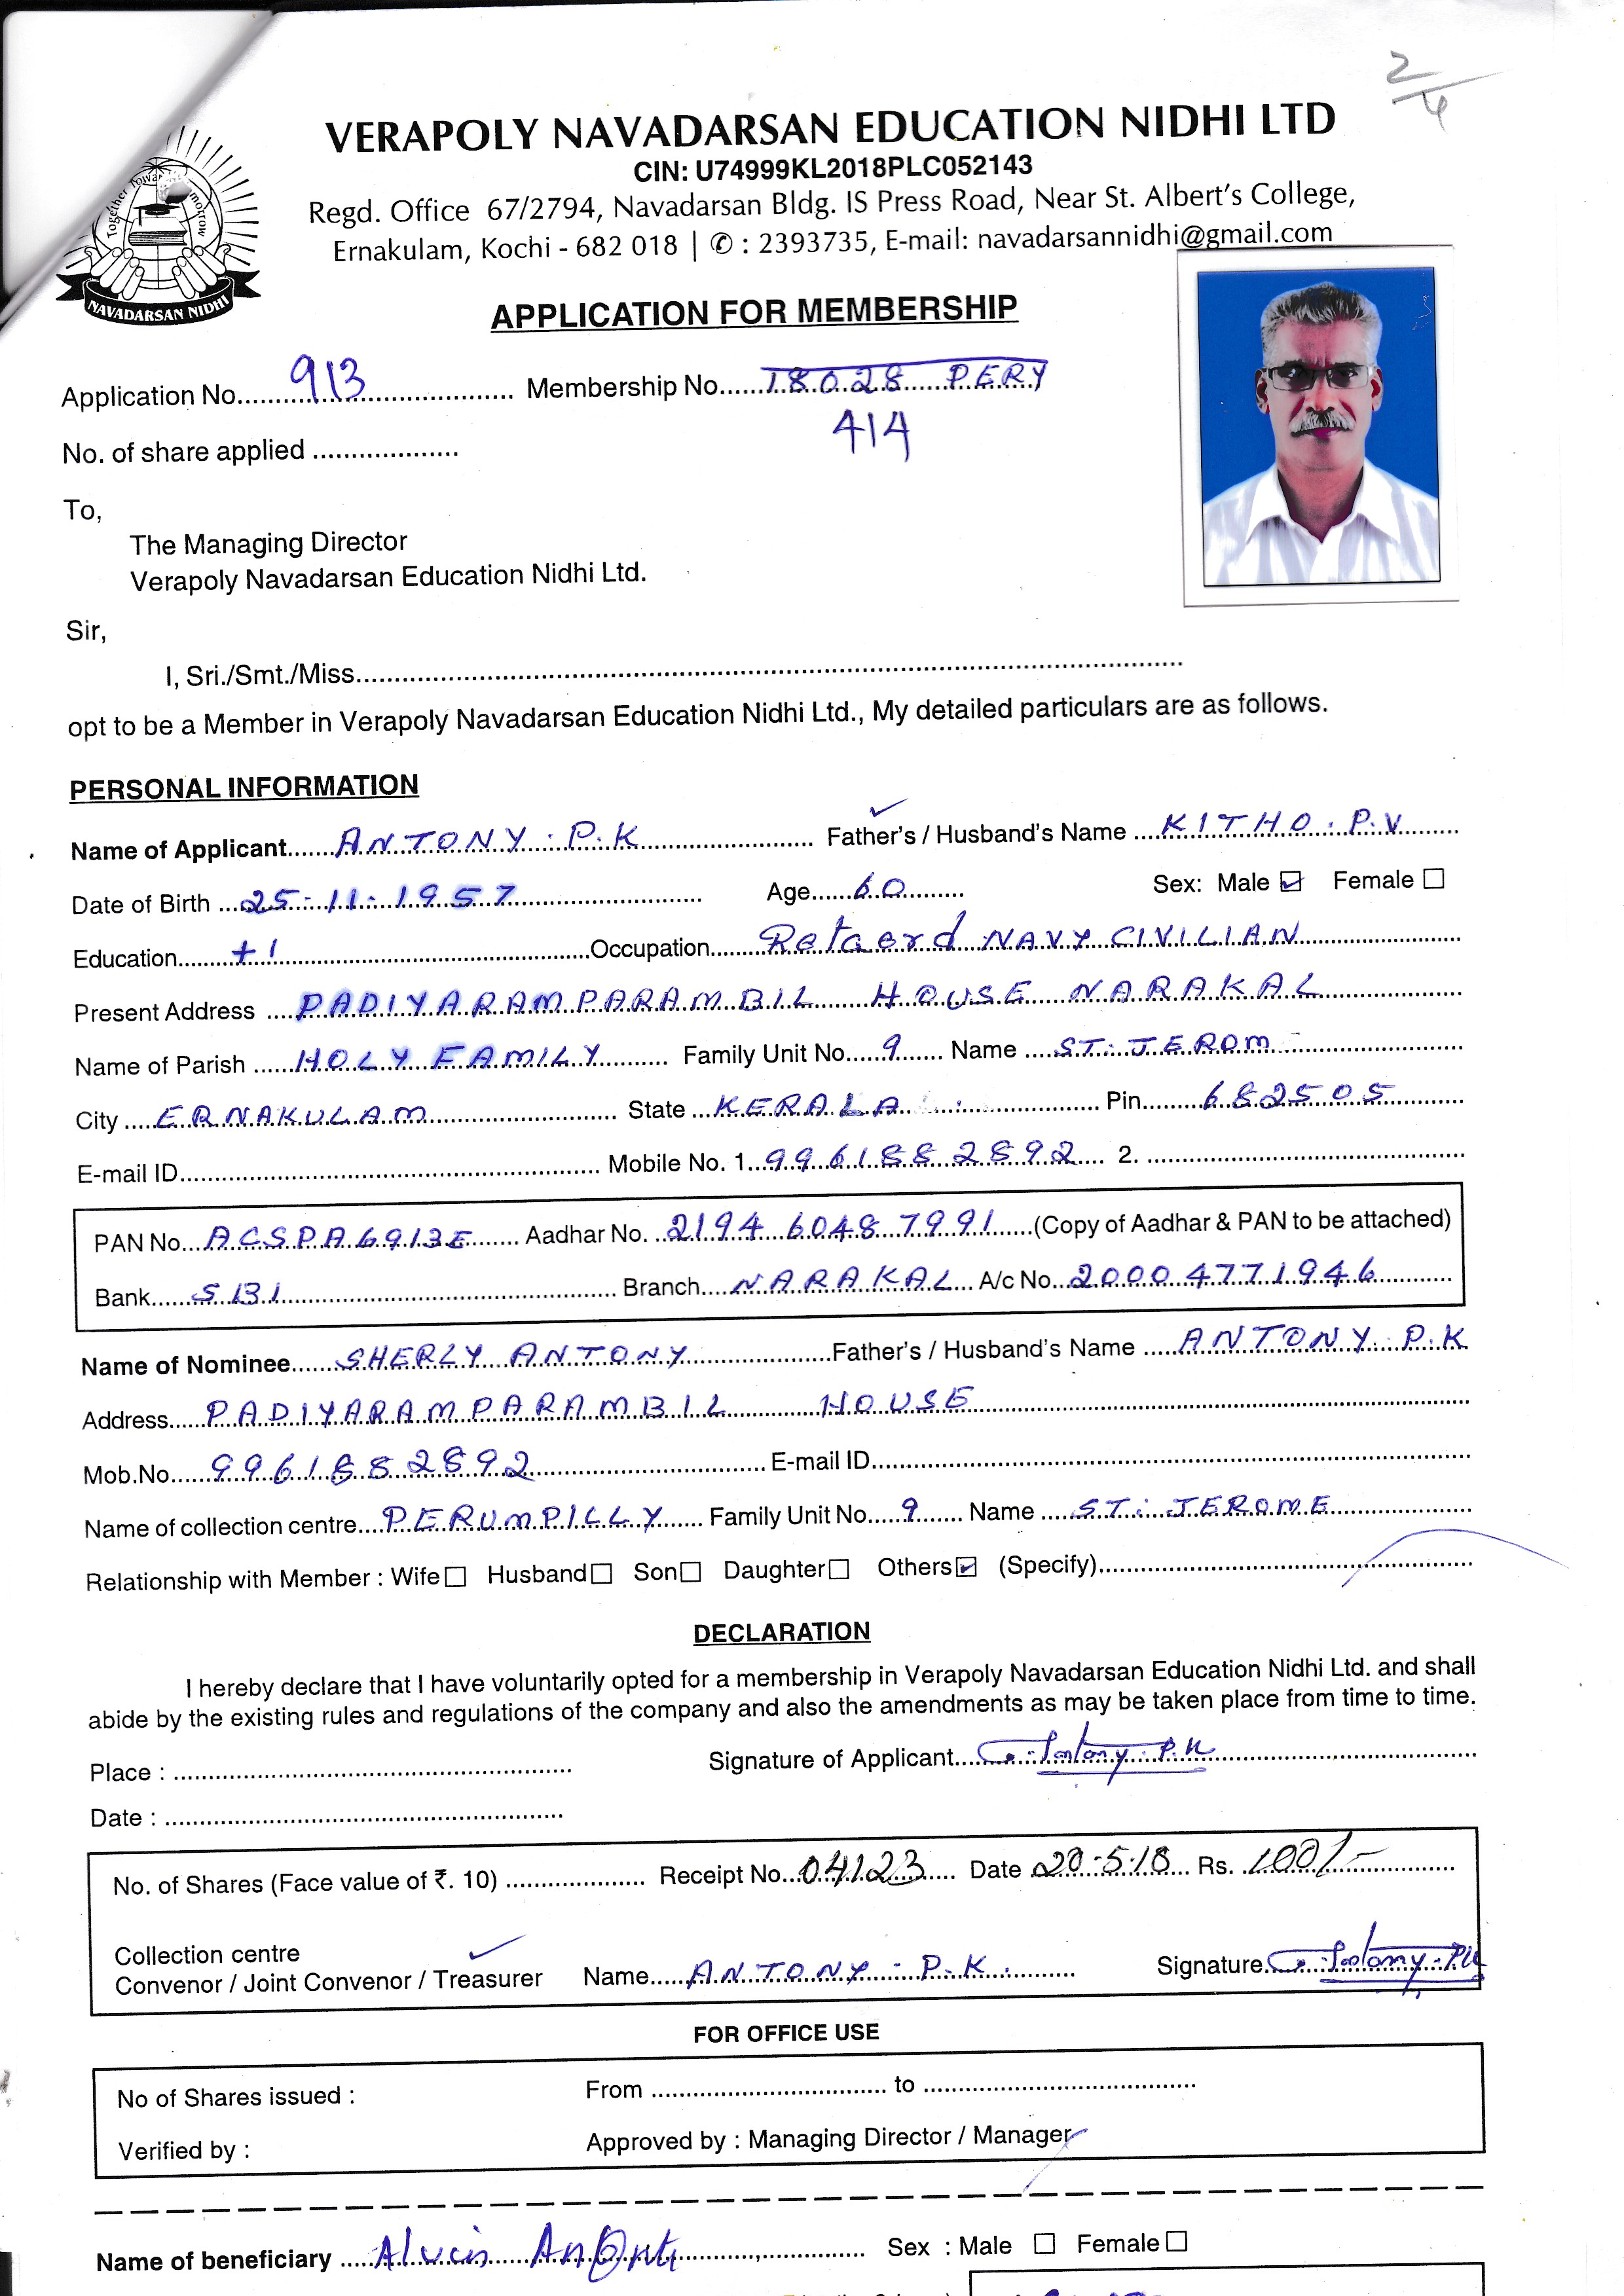 2/4
VERAPOLY NAVADARSAN EDUCATION NIDHI LTD
CIN: U74999KL2018PLC052143
Regd. Office 67/2794, Navadarsan Bldg. IS Press Road, Near St. Albert's College,
Ernakulam, Kochi - 682 018 | ✆ : 2393735, E-mail: navadarsannidhi@gmail.com
Together Towa morrow
NAVADARSAN NIDHI
APPLICATION FOR MEMBERSHIP
Application No. 913 Membership No. 18028 PERY
414
No. of share applied
To,
The Managing Director
Verapoly Navadarsan Education Nidhi Ltd.
Sir,
I, Sri./Smt./Miss
opt to be a Member in Verapoly Navadarsan Education Nidhi Ltd., My detailed particulars are as follows.
PERSONAL INFORMATION
Name of Applicant ANTONY . P.K Father's / Husband's Name KITHO . P.V
Date of Birth 25-11-1957 Age 60 Sex: Male ☑ Female ☐
Education +1 Occupation Retaerd NAVY CIVILIAN
Present Address PADIYARAMPARAMBIL HOUSE NARAKAL
Name of Parish HOLY FAMILY Family Unit No. 9 Name ST. JEROM
City ERNAKULAM State KERALA Pin 682505
E-mail ID Mobile No. 1. 9961882892 2.
PAN No. ACSPA6913E Aadhar No. 2194 6048 7991 (Copy of Aadhar & PAN to be attached)
Bank SBI Branch NARAKAL A/c No. 20004771946
Name of Nominee SHERLY ANTONY Father's / Husband's Name ANTONY P.K
Address PADIYARAMPARAMBIL HOUSE
Mob.No. 9961882892 E-mail ID
Name of collection centre PERUMPILLY Family Unit No. 9 Name ST. JEROME
Relationship with Member : Wife ☐ Husband ☐ Son ☐ Daughter ☐ Others ☑ (Specify)
DECLARATION
I hereby declare that I have voluntarily opted for a membership in Verapoly Navadarsan Education Nidhi Ltd. and shall
abide by the existing rules and regulations of the company and also the amendments as may be taken place from time to time.
Place : Signature of Applicant Antony P.K
Date :
No. of Shares (Face value of ₹. 10) Receipt No. 04123 Date 20-5-18 Rs. 100/-
Collection centre
Convenor / Joint Convenor / Treasurer Name ANTONY - P.K. Signature Antony P.K
FOR OFFICE USE
No of Shares issued : From to
Verified by : Approved by : Managing Director / Manager
Name of beneficiary Sex : Male ☐ Female ☐